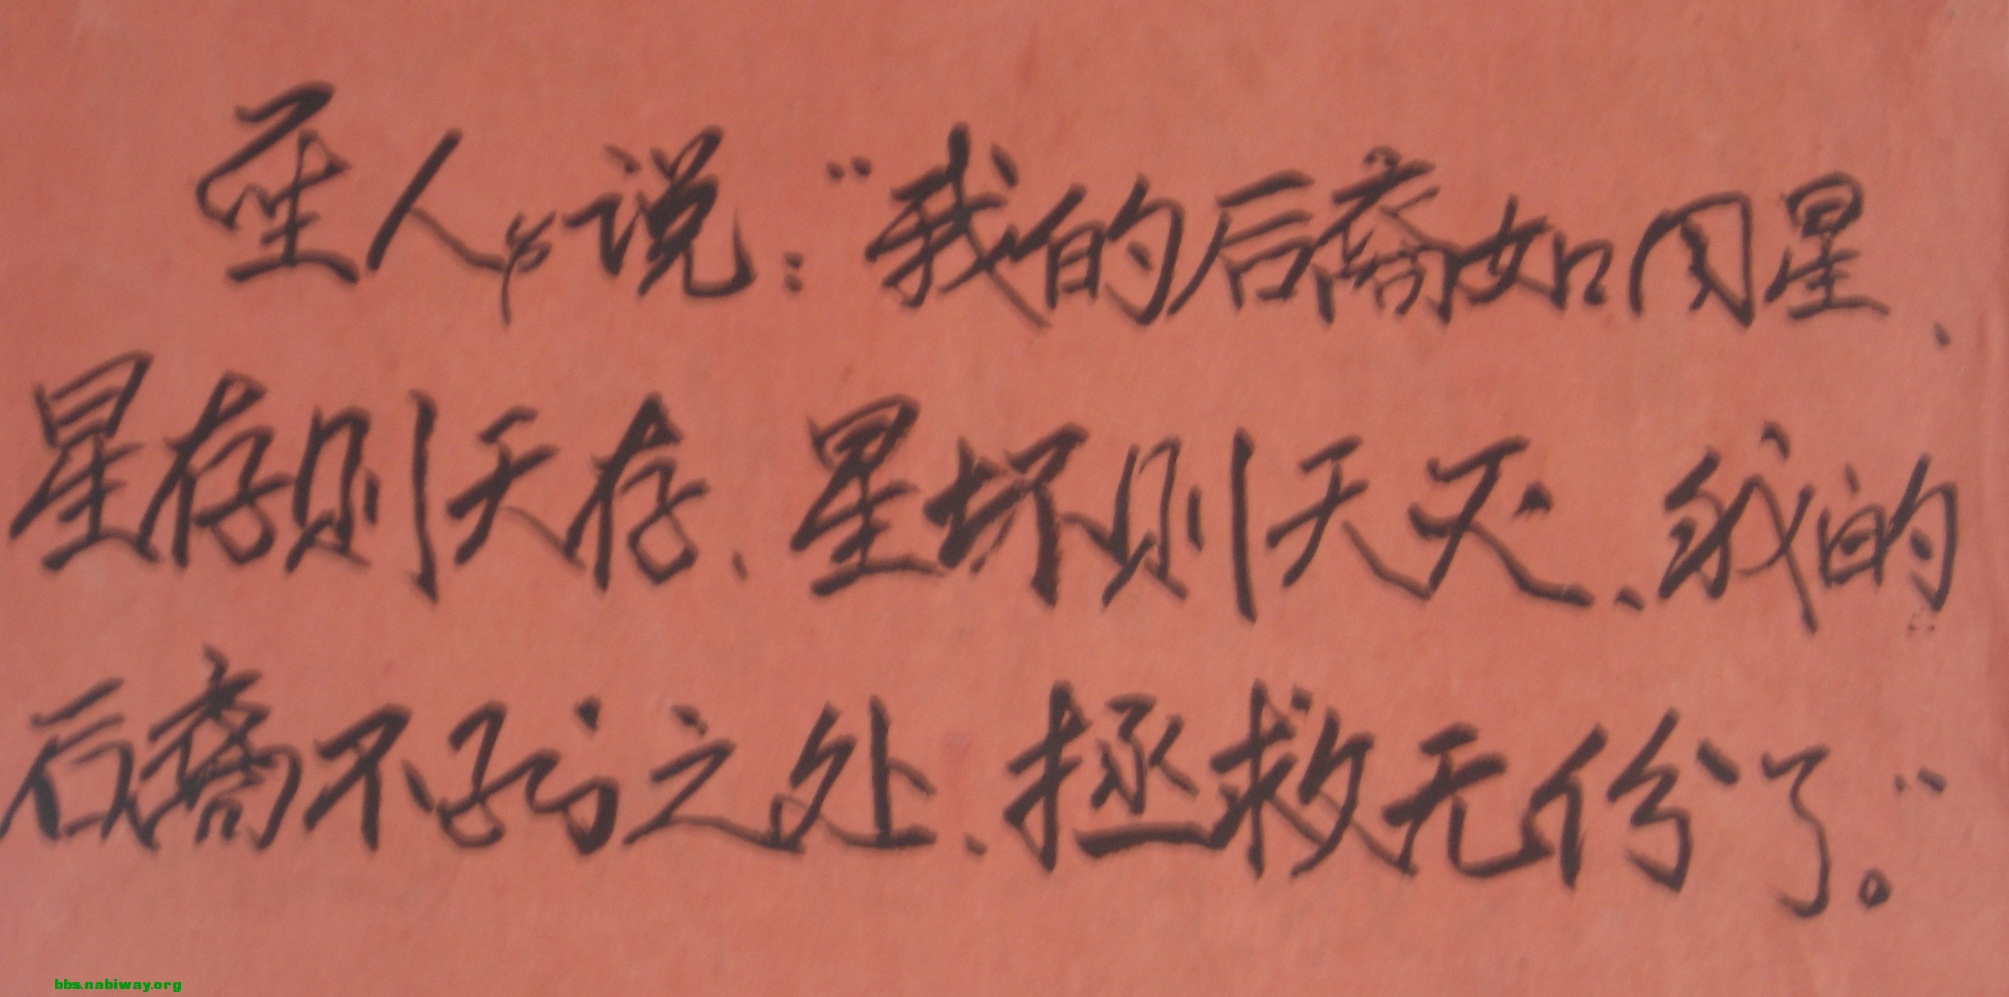 圣人说：“我的后裔如同星、
星存则天存、星坏则天灭、我的
后裔不到之处、拯救无份了。”
bbs.nabiway.org